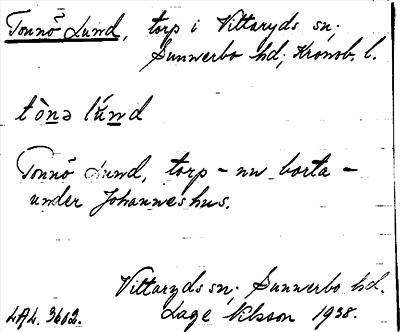 Tonnö Lund, torp i Vittaryds sn;
Sunnerbo hd; Kronob. l.
tònə lúnd
Tonnö Lund, torp - nu borta -
under Johanneshus.
Vittaryds sn; Sunnerbo hd.
LAL. 3602. Lage Nilsson 1938.